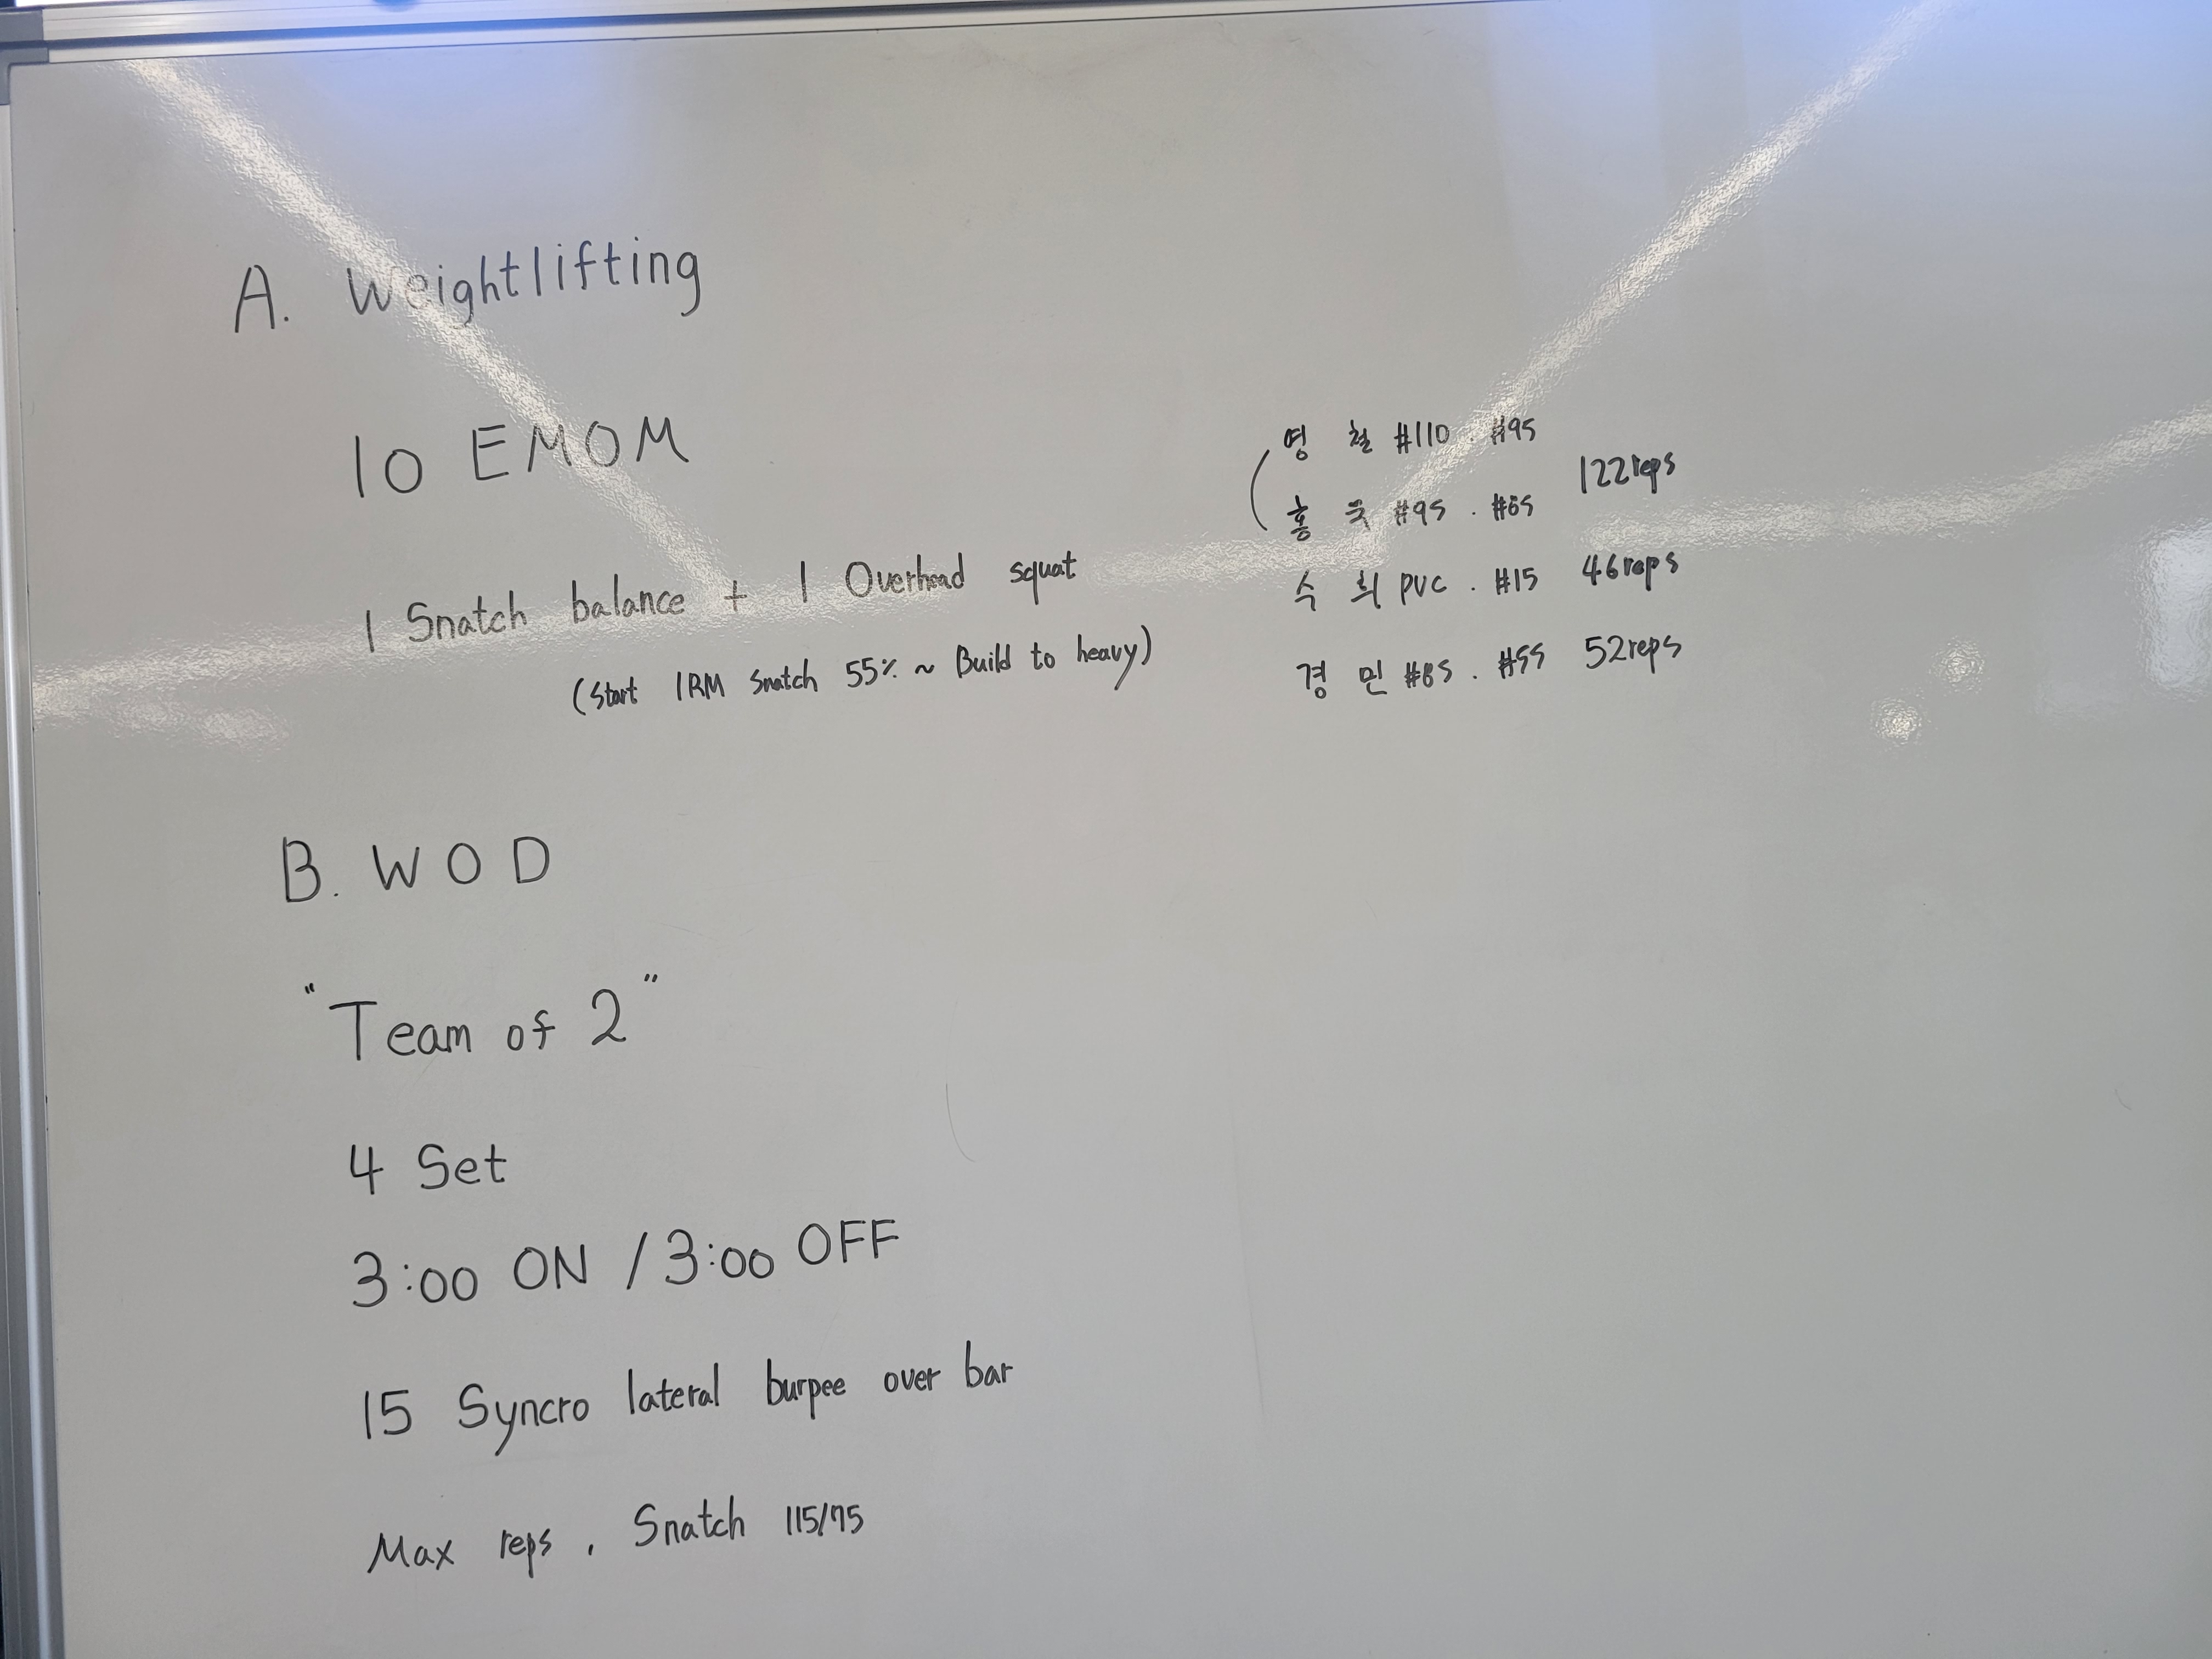 A. Weightlifting
10 EMOM
1 Snatch balance + 1 Overhead squat
(Start 1RM Snatch 55% ~ Build to heavy)
B. WOD
"Team of 2"
4 Set
3:00 ON / 3:00 OFF
15 Syncro lateral burpee over bar
Max reps, Snatch 115/75
영 철 #110 . #95
122reps
홍 욱 #95 . #65
수 희 PVC . #15 46reps
경 민 #85 . #55 52reps